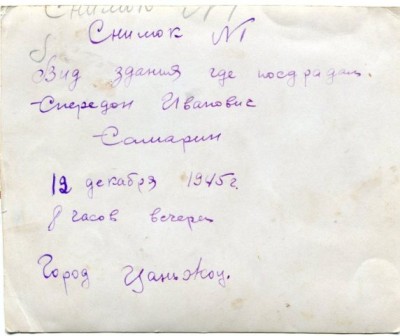 Снимок №1
Снимок №1
Вид здания где посдрадал.
Спередон Иванович
Самарин
12 декабря 1945г.
8 часов вечера
Город Цаньжоу.